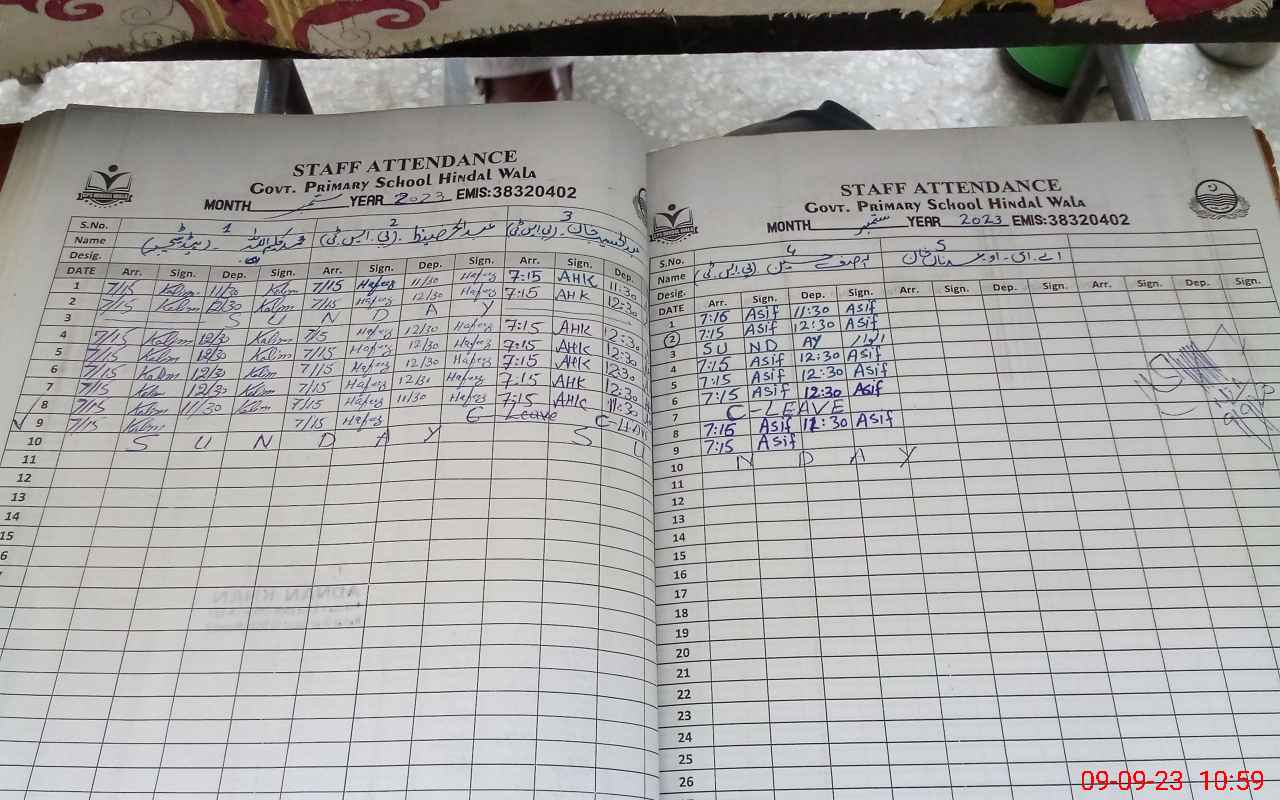 STAFF ATTENDANCE
GOVT. PRIMARY SCHOOL HINDAL WALA
MONTH ستمبر YEAR 2023 EMIS:38320402
S.No. 1 2 3
Name
Desig. (پی.ایس.ٹی) (پی.ایس.ٹی)
DATE Arr. Sign. Dep. Sign. Arr. Sign. Dep. Sign. Arr. Sign. Dep.
1 7/15 Kalim 11/30 Kalim 7/15 Hafeez 11/30 Hafeez 7:15 AHK 11:30
2 7/15 Kalim 12/30 Kalim 7/15 Hafeez 12/30 Hafeez 7:15 AHK 12:30
3 S U N D A Y
4 7/15 Kalim 12/30 Kalim 7/5 Hafeez 12/30 Hafeez 7:15 AHK 12:30
5 7/15 Kalim 12/30 Kalim 7/15 Hafeez 12/30 Hafeez 7:15 AHK 12:30
6 7/15 Kalim 12/30 Kalim 7/15 Hafeez 12/30 Hafeez 7:15 AHK 12:30
7 7/15 Kalim 12/30 Kalim 7/15 Hafeez 12/30 Hafeez 7:15 AHK 12:30
8 7/15 Kalim 11/30 Kalim 7/15 Hafeez 11/30 Hafeez 7:15 AHK 11:30
9 7/15 Kalim 7/15 Hafeez C Leave C-LEAVE
10 S U N D A Y S U
11
12
13
14
15
STAFF ATTENDANCE
GOVT. PRIMARY SCHOOL HINDAL WALA
MONTH ستمبر YEAR 2023 EMIS:38320402
S.No. 4 5
Name (پی.ایس.ٹی) اے.ای.او
Desig.
DATE Arr. Sign. Dep. Sign. Arr. Sign. Dep. Sign. Arr. Sign. Dep. Sign.
1 7:15 Asif 11:30 Asif
2 7:15 Asif 12:30 Asif
3 SU ND AY اتوار
4 7:15 Asif 12:30 Asif
5 7:15 Asif 12:30 Asif
6 7:15 Asif 12:30 Asif
7 C-LEAVE
8 7:15 Asif 11:30 Asif
9 7:15 Asif
10 N D A Y
11
12
13
14
15
16
17
18
19
20
21
22
23
24
25
26
ADNAN KHAN
09-09-23 10:59